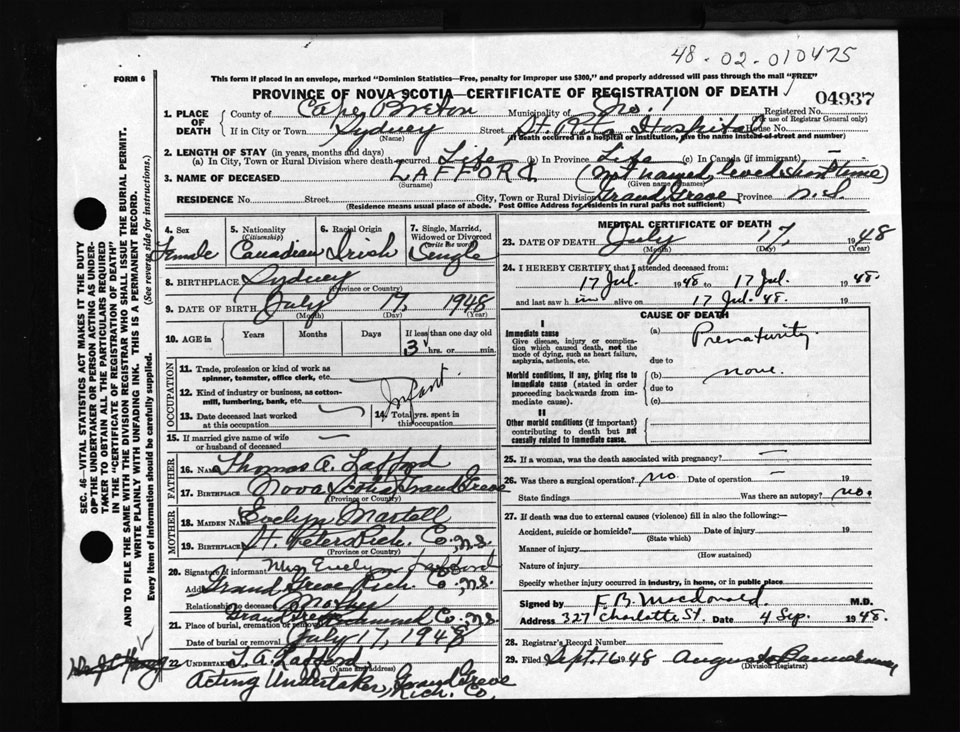 48-02-010475
FORM 6
This form if placed in an envelope, marked "Dominion Statistics—Free, penalty for improper use $300," and properly addressed will pass through the mail "FREE"
PROVINCE OF NOVA SCOTIA—CERTIFICATE OF REGISTRATION OF DEATH
04937
1. PLACE OF DEATH County of Cape Breton Municipality of No. 1 Registered No.
(For use of Registrar General only)
If in City or Town Sydney Street St. Rita Hospital House No.
(If death occurred in a hospital or institution, give the name instead of street and number)
2. LENGTH OF STAY (in years, months and days)
(a) In City, Town or Rural Division where death occurred Life (b) In Province Life (c) In Canada (if immigrant) —
3. NAME OF DECEASED LAFFORD (not named, lived short time)
(Surname) (Given name or names)
RESIDENCE No. Street City, Town or Rural Division Grand Greve Province N.S.
(Residence means usual place of abode. Post Office Address for residents in rural parts not sufficient)
4. Sex Female
5. Nationality (Citizenship) Canadian
6. Racial Origin Irish
7. Single, Married, Widowed or Divorced (write the word) Single
8. BIRTHPLACE Sydney
(Province or Country)
9. DATE OF BIRTH July 17, 1948
(Month) (Day) (Year)
10. AGE in Years Months Days If less than one day old 3 hrs. or min.
OCCUPATION
11. Trade, profession or kind of work as spinner, teamster, office clerk, etc.
12. Kind of industry or business, as cotton-mill, lumbering, bank, etc. Infant
13. Date deceased last worked at this occupation
14. Total yrs. spent in this occupation
15. If married give name of wife or husband of deceased —
FATHER
16. NAME Thomas A. Lafford
17. BIRTHPLACE Nova Scotia, Grand Greve
(Province or Country)
MOTHER
18. MAIDEN NAME Evelyn Martell
19. BIRTHPLACE St. Peters Rich. Co., N.S.
(Province or Country)
20. Signature of informant Mrs Evelyn Lafford
Address Grand Greve Rich. Co., N.S.
Relationship to deceased Mother
21. Place of burial, cremation or removal Grand Greve Richmond Co. N.S.
Date of burial or removal July 17, 1948
22. UNDERTAKER T. A. Lafford
(Name and address)
Acting Undertaker, Grand Greve
Rich. Co.
MEDICAL CERTIFICATE OF DEATH
23. DATE OF DEATH July 17, 1948
(Month) (Day) (Year)
24. I HEREBY CERTIFY that I attended deceased from:
17 Jul. 1948 to 17 Jul. 1948
and last saw h im alive on 17 Jul. 48. 19
CAUSE OF DEATH
I
Immediate cause
Give disease, injury or complication which caused death, not the mode of dying, such as heart failure, asphyxia, asthenia, etc.
(a) Prematurity
due to
Morbid conditions, if any, giving rise to immediate cause (stated in order proceeding backwards from immediate cause).
(b) none.
due to
(c)
II
Other morbid conditions (if important) contributing to death but not causally related to immediate cause.
25. If a woman, was the death associated with pregnancy? —
26. Was there a surgical operation? no. Date of operation — 19
State findings Was there an autopsy? no.
27. If death was due to external causes (violence) fill in also the following:—
Accident, suicide or homicide? Date of injury 19
(State which)
Manner of injury
(How sustained)
Nature of injury
Specify whether injury occurred in industry, in home, or in public place
Signed by F. B. Macdonald. M.D.
Address 327 Charlotte St. Date 4 Sep. 1948.
28. Registrar's Record Number
29. Filed Sept. 16 1948
(Division Registrar)
SEC. 46—VITAL STATISTICS ACT MAKES IT THE DUTY
OF THE UNDERTAKER OR PERSON ACTING AS UNDERTAKER TO OBTAIN ALL THE PARTICULARS REQUIRED
IN THE "CERTIFICATE OF REGISTRATION OF DEATH"
AND TO FILE THE SAME WITH THE DIVISION REGISTRAR WHO SHALL ISSUE THE BURIAL PERMIT.
WRITE PLAINLY WITH UNFADING INK. THIS IS A PERMANENT RECORD.
Every item of information should be carefully supplied. (See reverse side for instructions.)